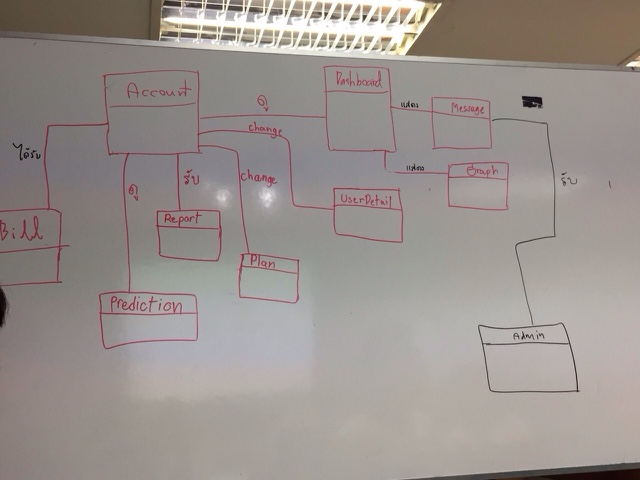 Account
Dashboard
ดู
แสดง
Message
change
ได้รับ
แสดง
Graph
รับ
ดู
รับ
change
UserDetail
Bill
Report
Plan
Prediction
Admin